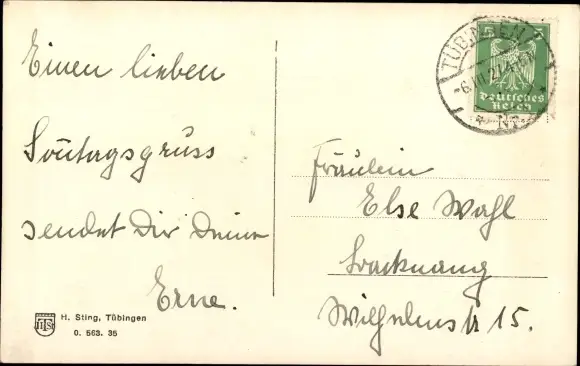 Einen lieben
Sonntagsgruss
sendet Dir Deine
Erne.
H. Sting, Tübingen
0. 563. 35
TÜBINGEN
-6.III.27.
5
Deutsches
Reich
Fräulein
Else Wahl
Backnang
Wilhelmstr 15.